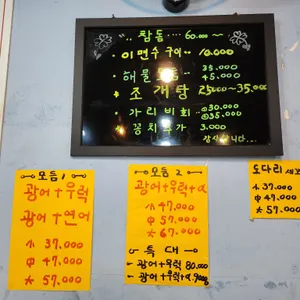 참돔 ···· 60.000 ~
· 이면수 구이 ·· 10.000
· 해물모듬 - 35.000
45.000
* 조개탕 25000~35.000
· 가리비회 - 小30.000
大35.000
· 꽁치추가 3.000
감사합니다....
모듬 1
광어+우럭
광어+연어
小 37.000
中 47.000
大 57.000
모듬 2
광어+우럭+α
小 47.000
中 57.000
大 67.000
~ 특대 ~
광어+우럭 80.000
광어+우럭+α
도다리
小 37.000
中 47.000
大 57.000